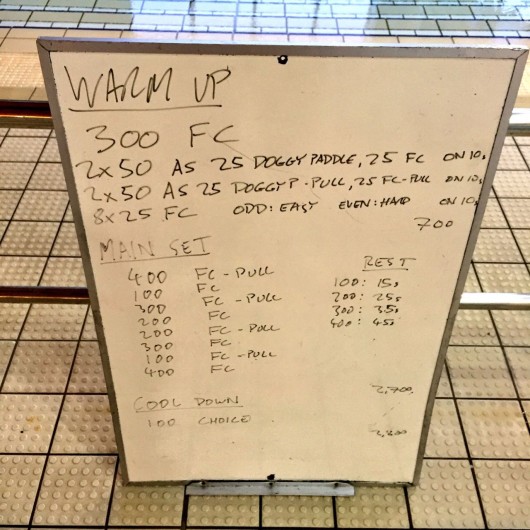 WARM UP
300 FC
2x50 AS 25 DOGGY PADDLE, 25 FC ON 10s
2x50 AS 25 DOGGY P-PULL, 25 FC-PULL ON 10s
8x25 FC ODD: EASY EVEN: HARD ON 10s
700
MAIN SET
REST
400 FC-PULL
100: 15s
100 FC
200: 25s
300 FC-PULL
300: 35s
200 FC
400: 45s
200 FC-PULL
300 FC
100 FC-PULL
400 FC
2,700
COOL DOWN
100 CHOICE
2,800